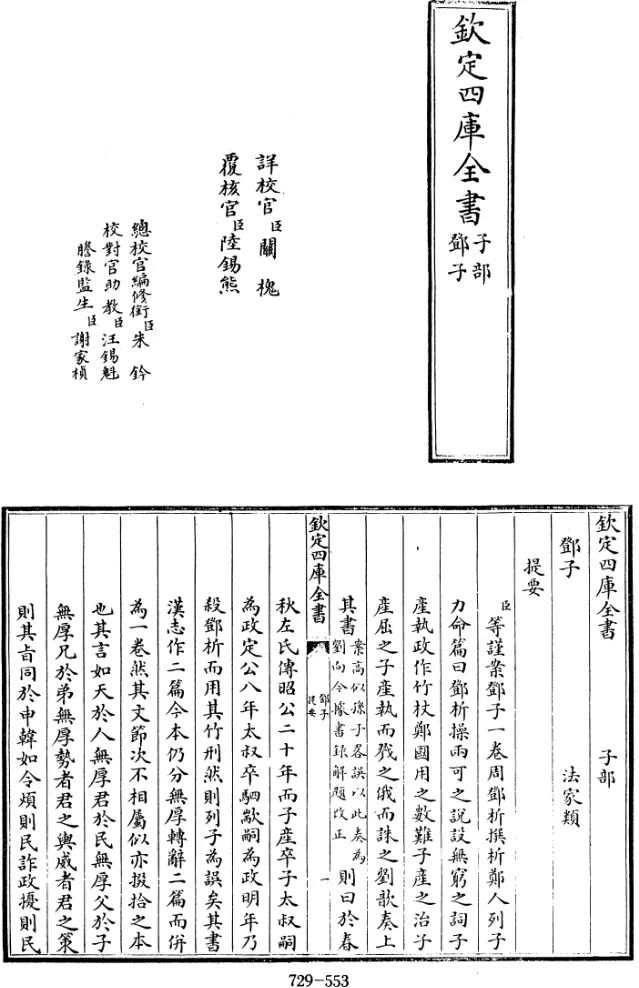 欽定四庫全書
子部
鄧子
詳校官臣關槐
覆核官臣陸錫熊
總校官編修銜臣朱鈐
校對官助教臣汪錫魁
謄錄監生臣謝家楨
欽定四庫全書 子部
鄧子 法家類
提要
臣等謹案鄧子一卷周鄧析撰析鄭人列子
力命篇曰鄧析操兩可之說設無窮之詞子
產執政作竹杖鄭國用之數難子產之治子
產屈之子產執而戮之俄而誅之劉歆奏上
其書案高似孫子畧誤以此奏為劉向今據書錄解題改正則曰於春
欽定四庫全書 鄧子 提要 一
秋左氏傳昭公二十年而子產卒子太叔嗣
為政定公八年太叔卒駟歂嗣為政明年乃
殺鄧析而用其竹刑然則列子為誤矣其書
漢志作二篇今本仍分無厚轉辭二篇而併
為一卷然其文節次不相屬似亦掇拾之本
也其言如天於人無厚君於民無厚父於子
無厚兄於弟無厚勢者君之輿威者君之策
則其旨同於申韓如令煩則民詐政擾則民
729-553